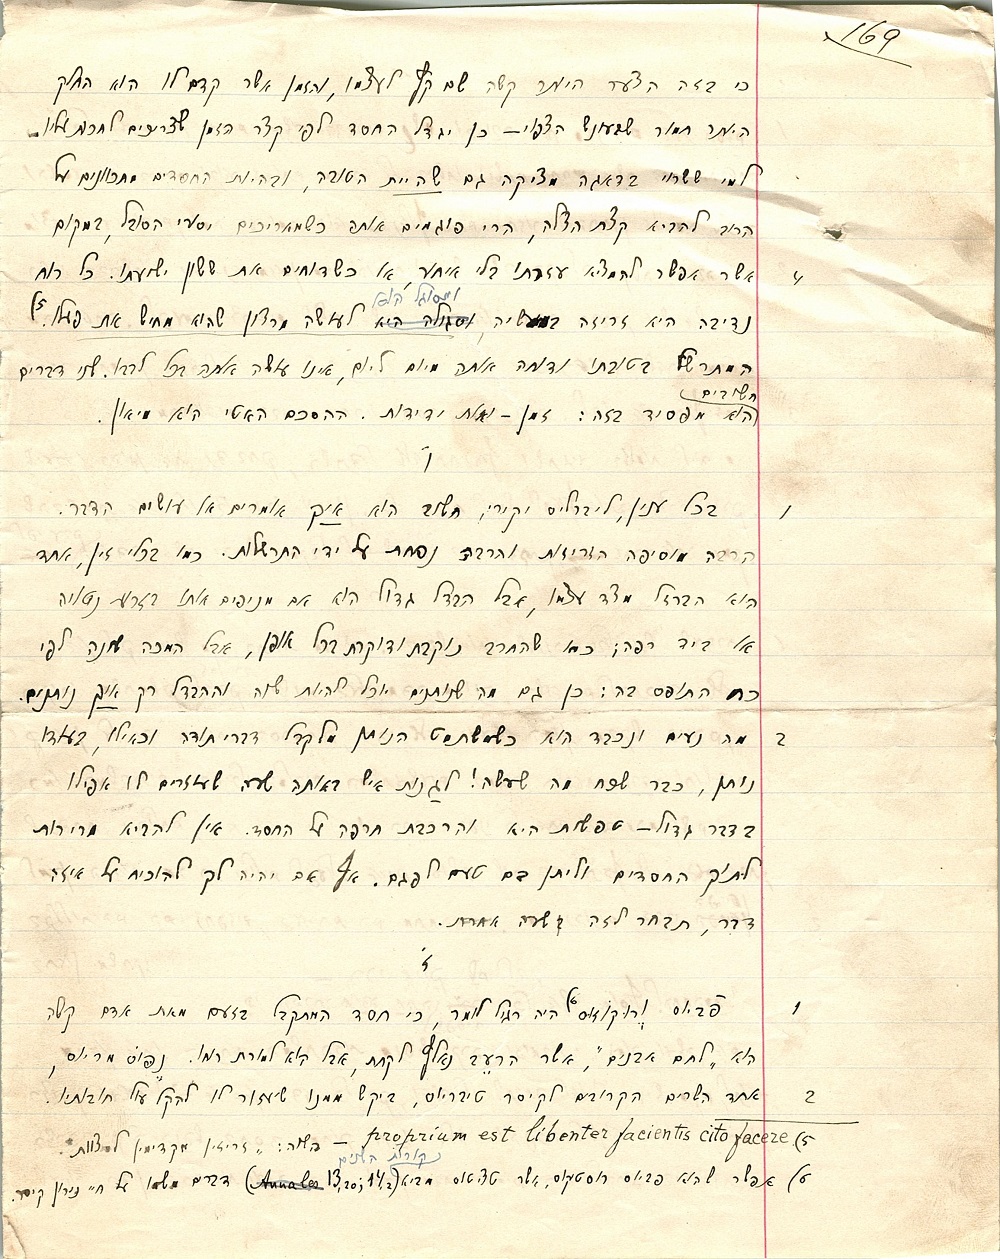 169
כי בזה הצער היותר קשה שם קץ לעצמו, והזמן אשר קדם לו הוא החלק
היותר חמור שבעונש הצפוי — כן יגדל החסד לפי קצר הזמן שצריכים לחכות אליו.
למי ששרוי בדאגה מציקה גם שהיית הטובה, ובהיות החסדים מתכוונים על
הרוב להביא קצת הצלה, הרי פוגמים אותה כשמאריכים יסורי הסובל, במקום
4 אשר אפשר להמציא עזרתו בלי איחור, או כשדוחים את ששון ישועתו. כל רוח
ומסוגל הוא
נדיבה היא זריזה בעשיה, וסגולה היא לעושה מרצון שהוא מחיש את פעלו. 5)
המתרשל בטובתו ודוחה אותה מיום ליום, אינו עושה אותה בכל לבו. שני דברים
חשובים
הוא מפסיד בזה: זמן — ואות ידידות. ההסכם האטי הוא מיאון.
ו'
1 בכל ענין, ליברליס יקירי, חשוב הוא איך אומרים או עושים הדבר.
הרבה מוסיפה הזריזות והרבה נפחת על ידי התרשלות. כמו בכלי זין, אחד
הוא הברזל מצד עצמו, אבל הבדל גדול הוא אם מניפים אותו בזרוע נטויה
או ביד רפה; כמו שהחרב נוקבת ודוקרת בכל אופן, אבל המכה שונה לפי
כח התופס בה: כן גם מה שנותנים יוכל להיות שוה וההבדל רק איך נותנים.
2 מה נעים ונכבד הוא כשמשתמט הנותן מלקבל דברי תודה וכאילו, בעודו
נותן, כבר שכח מה שעשה! לגנות איש באותה שעה שעוזרים לו אפילו
בדבר גדול — טפשות היא והרכבת חרפה על החסד. אין להביא מרירות
לתוך החסדים וליתן בם טעם לפגם. אף אם יהיה לך להוכיח על איזה
דבר, תבחר לזה שעה אחרת.
ז'
1 פביוס ורוקוזוס 6) היה רגיל לומר, כי חסד המתקבל בזעם מאת אדם קשה
הוא „לחם אבנים", אשר הרעב נאלץ לקחת, אבל הוא למורת רוחו. נפוס מריוס,
2 אחד השרים הקרובים לקיסר טיבריוס, ביקש ממנו שיעזור לו להקל עול חובותיו.
5) proprium est libenter facientis cito facere — השוה: „זריזין מקדימין למצוות".
קורות השנים
6) אפשר שהוא פביוס רוסטקוס, אשר טציטוס מביא (Annales 13,20; 14,2) דברים משמו על חיי נירון קיסר.